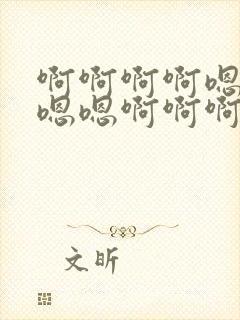 啊啊啊啊嗯
嗯嗯啊啊啊
文昕